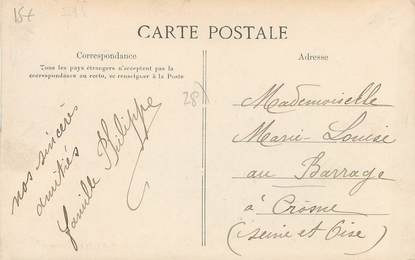 15+
CARTE POSTALE
Correspondance
Tous les pays étrangers n'acceptent pas la
correspondance au recto, se renseigner à la Poste
nos sincères
amitiés
famille Philippe
28
Adresse
Mademoiselle
Marie-Louise
au Barrage
à Crosne
(Seine et Oise)